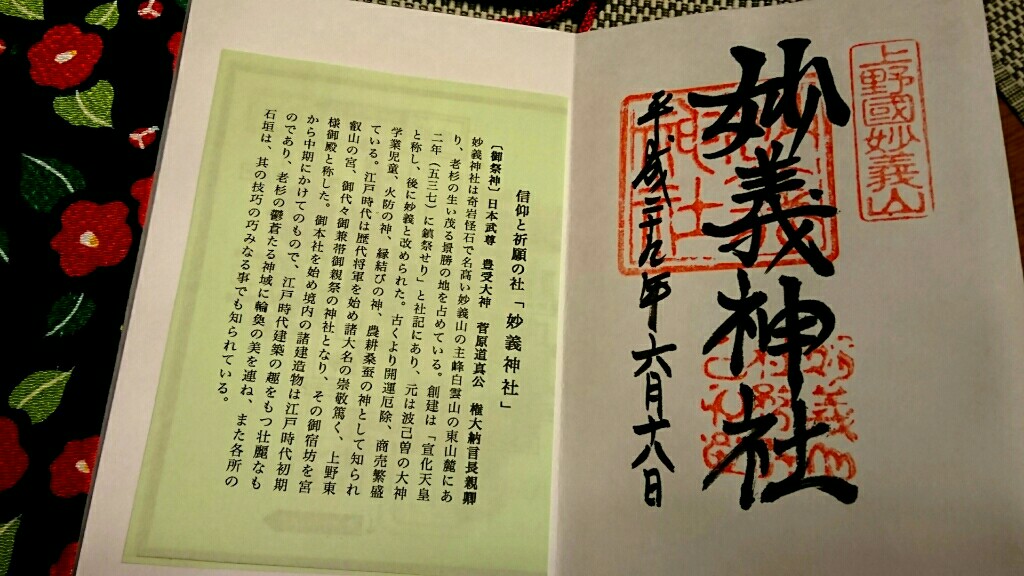 上野國妙義山
妙義神社
平成二十九年六月十八日
信仰と祈願の社「妙義神社」
〔御祭神〕日本武尊　豊受大神　菅原道真公　権大納言長親卿
妙義神社は奇岩怪石で名高い妙義山の主峰白雲山の東山麓にあ
り、老杉の生い茂る景勝の地を占めている。創建は「宣化天皇
二年（五三七）に鎮祭せり」と社記にあり、元は波己曽の大神
と称し、後に妙義と改められた。古くより開運厄除、商売繁盛
学業児童、火防の神、縁結びの神、農耕桑蚕の神として知られ
ている。江戸時代は歴代将軍を始め諸大名の崇敬篤く、上野東
叡山の宮、御代々御兼帯御親祭の神社となり、その御宿坊を宮
様御殿と称した。御本社を始め境内の諸建造物は江戸時代初期
から中期にかけてのもので、江戸時代建築の趣をもつ壮麗なも
のであり、老杉の鬱蒼たる神域に輪奐の美を連ね、また各所の
石垣は、其の技巧の巧みなる事でも知られている。